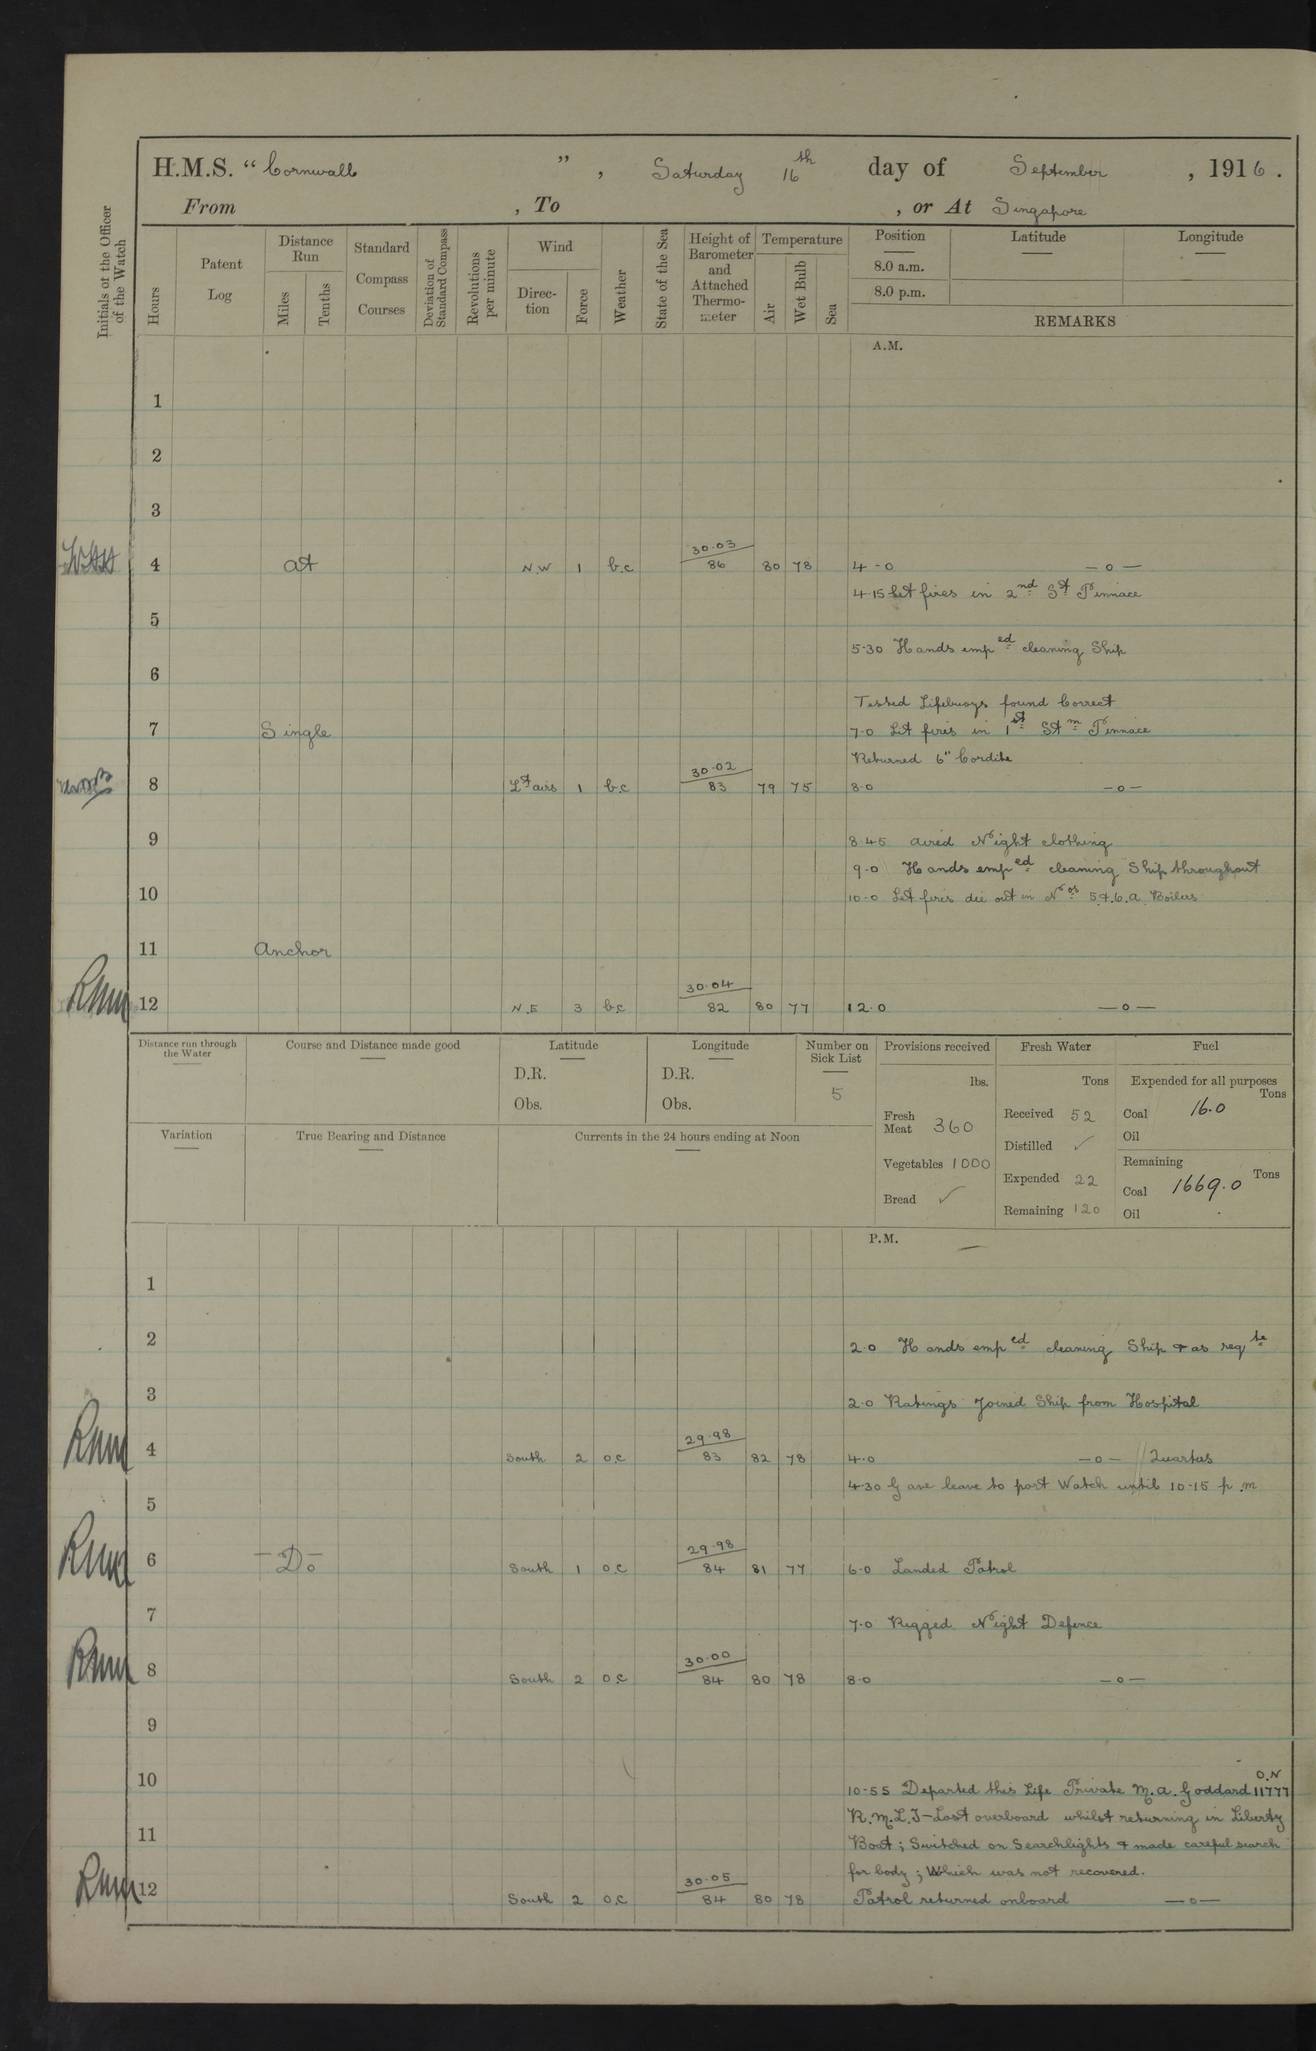 H.M.S. “ Cornwall ” , Saturday 16th day of September , 1916 .
From , To , or At Singapore
Initials of the Officer of the Watch
Hours
Patent Log
Distance Run
Miles
Tenths
Standard Compass Courses
Deviation of Standard Compass
Revolutions per minute
Wind
Direc-tion
Force
Weather
State of the Sea
Height of Barometer and Attached Thermo-meter
Temperature
Air
Wet Bulb
Sea
Position Latitude Longitude
8.0 a.m.
8.0 p.m.
REMARKS
A.M.
1
2
3
4 at N.W 1 b.c 30.03 86 80 78 4-0 —o—
4-15 Let fires in 2nd St Pinnace
5
5-30 Hands emped cleaning Ship
6
Tested Lifebuoys found Correct
7 Single 7-0 Lit fires in 1st Stm Pinnace
Returned 6" Cordite
8 Lt airs 1 b.c 30.02 83 79 75 8.0 —o—
9 8.45 aired Night clothing
9-0 Hands emped cleaning Ship throughout
10 10-0 Let fires die out in Nos 5.&.6.a Boilers
11 Anchor
12 N.E 3 b.c 30.04 82 80 77 12.0 —o—
Distance run through the Water
Course and Distance made good
Latitude
D.R.
Obs.
Longitude
D.R.
Obs.
Number on Sick List
5
Provisions received
lbs.
Fresh Meat 360
Vegetables 1000
Bread ✓
Fresh Water
Tons
Received 52
Distilled ✓
Expended 22
Remaining 120
Fuel
Expended for all purposes
Tons
Coal 16.0
Oil
Remaining
Tons
Coal 1669.0
Oil
Variation
True Bearing and Distance
Currents in the 24 hours ending at Noon
P.M.
1
2 2.0 Hands emped cleaning Ship & as reqte
3 2.0 Ratings joined Ship from Hospital
4 South 2 o.c 29.98 83 82 78 4.0 —o— // Quarters
4-30 Gave leave to port Watch until 10-15 p.m
5
6 — Do — South 1 o.c 29.98 84 81 77 6-0 Landed Patrol
7 7.0 Rigged Night Defence
8 South 2 o.c 30.00 84 80 78 8.0 —o—
9
10 10-55 Departed this Life Private M.A. Goddard O.N 11777
R.M.L.I—Lost overboard whilst returning in Liberty
11 Boat; Switched on Searchlights & made careful search
for body; Which was not recovered.
12 South 2 o.c 30.05 84 80 78 Patrol returned onboard —o—